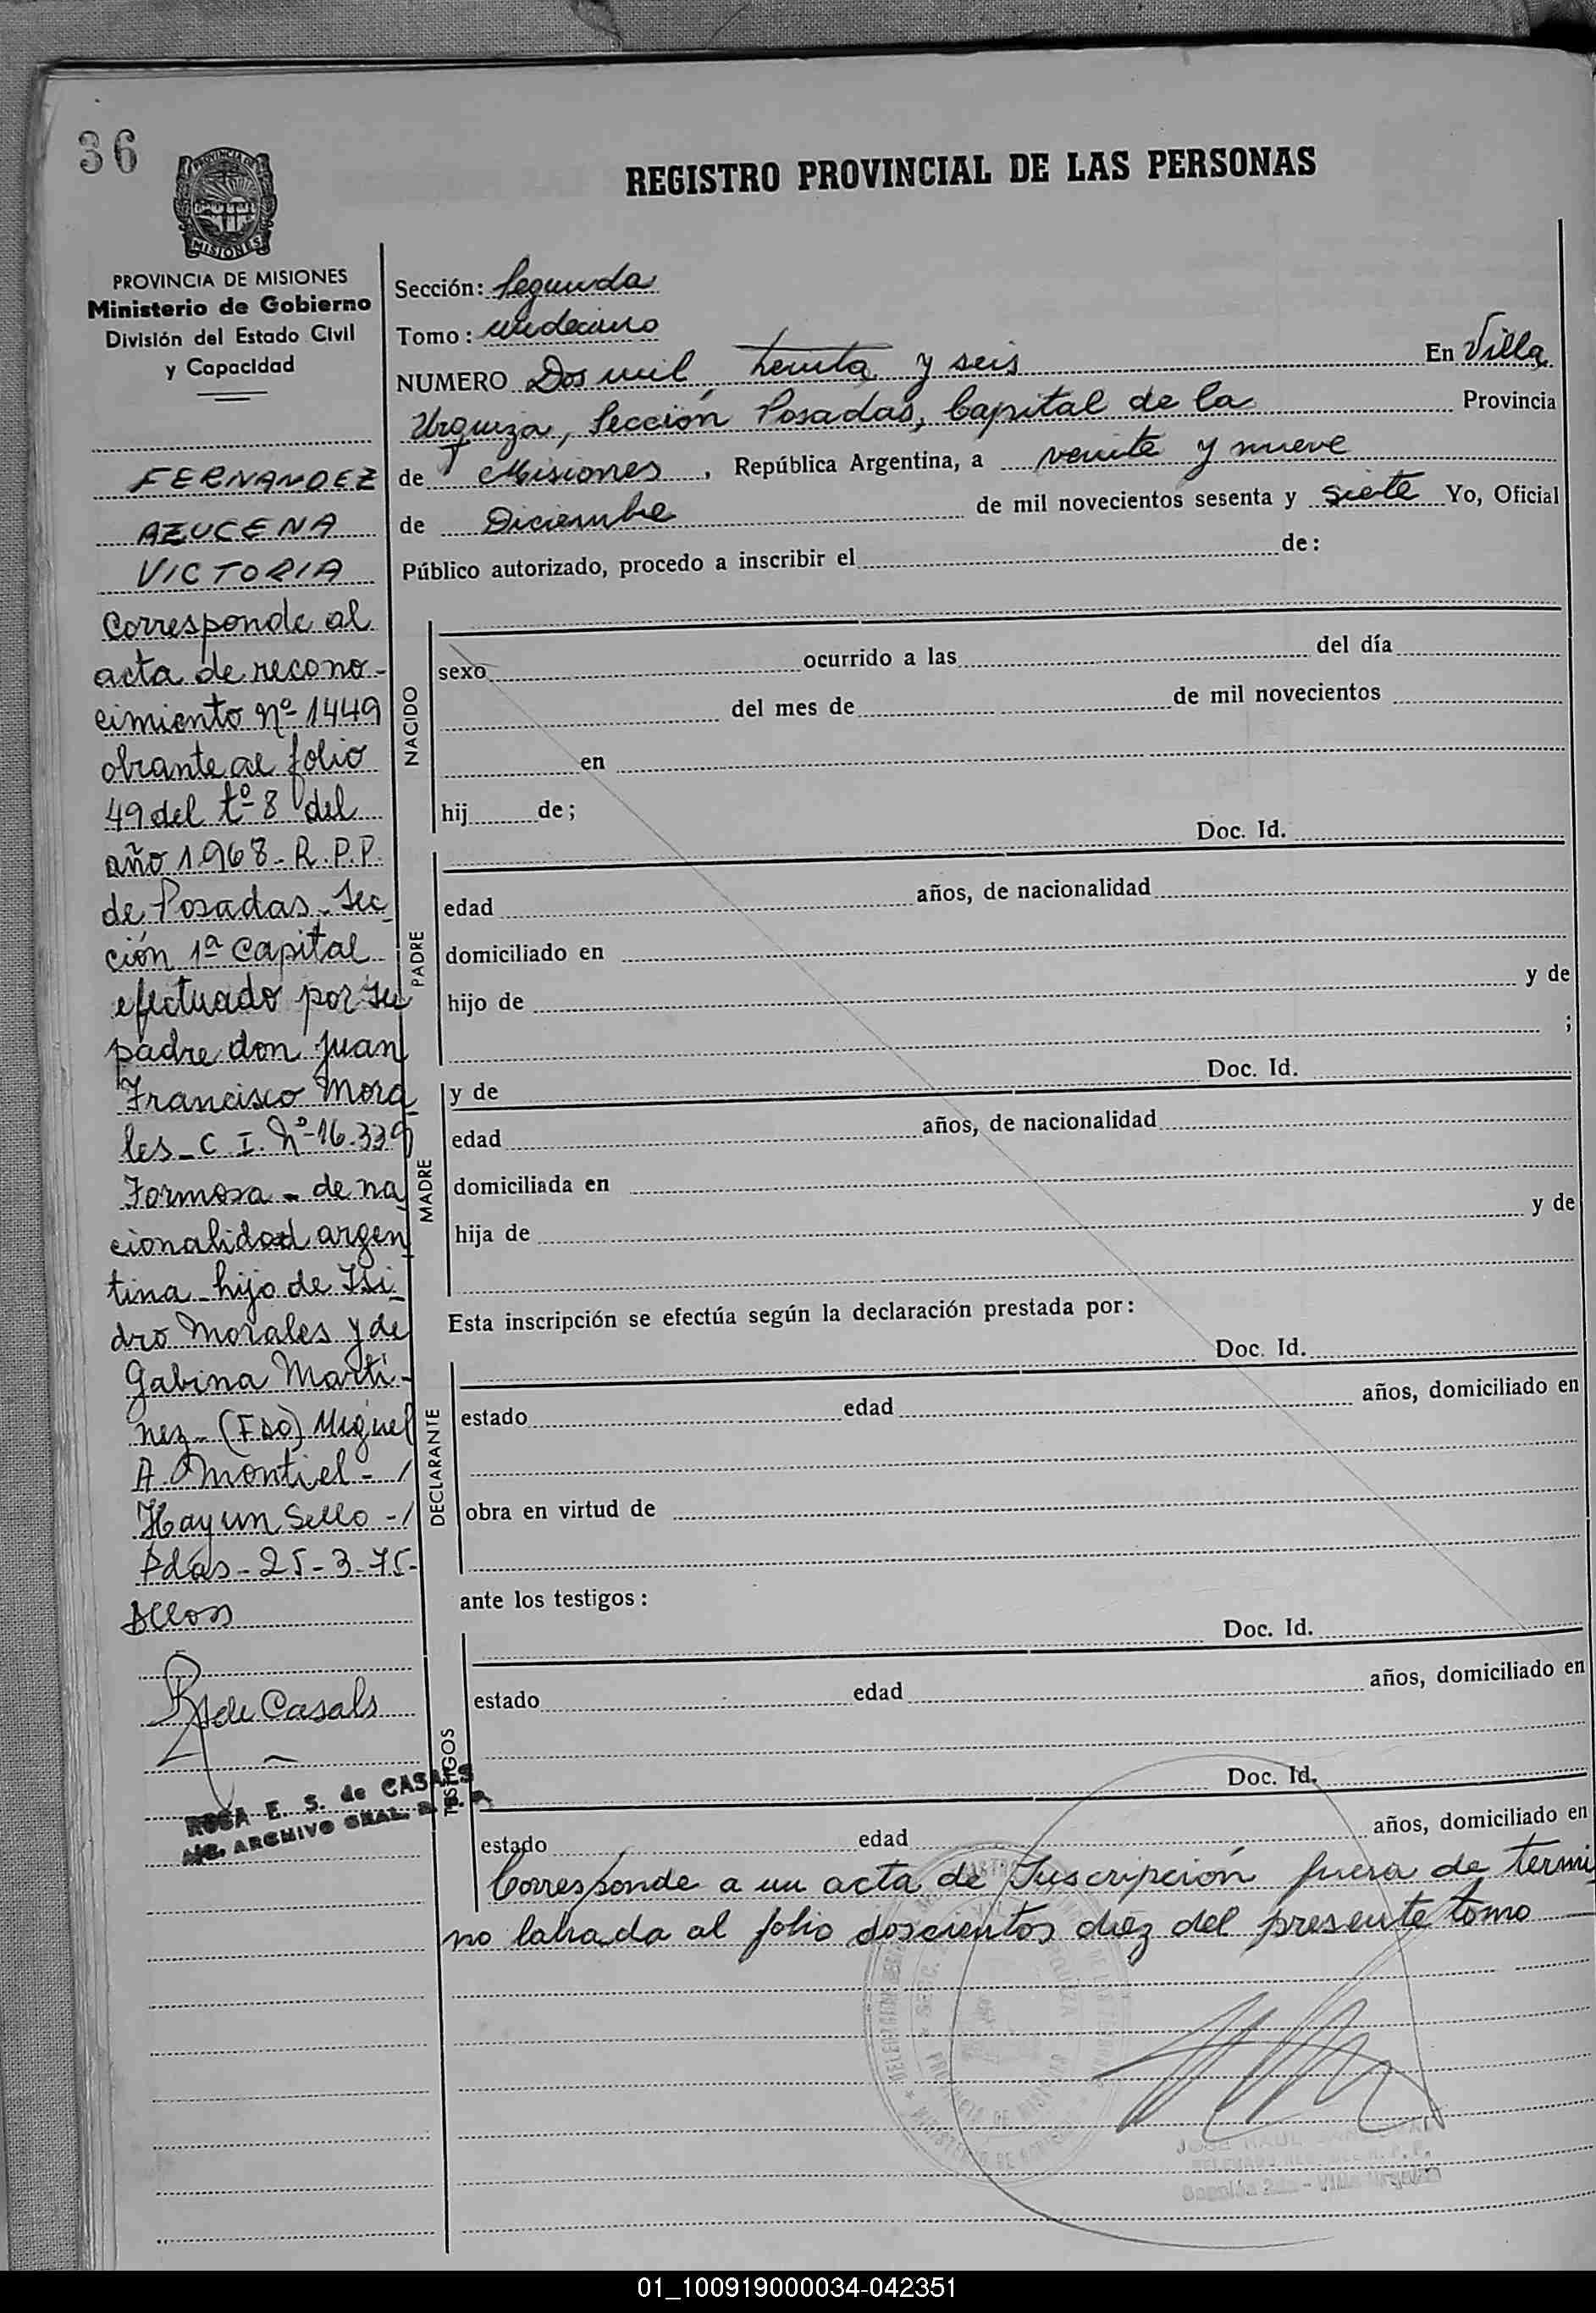 36
PROVINCIA DE
MISIONES
PROVINCIA DE MISIONES
Ministerio de Gobierno
División del Estado Civil
y Capacidad
FERNANDEZ
AZUCENA
VICTORIA
Corresponde al
acta de recono-
cimiento nº 1449
obrante al folio
49 del tº 8 del
año 1968 - R.P.P.
de Posadas - Sec
ción 1ª Capital
efectuado por su
padre don Juan
Francisco Mora
les - C.I. Nº 16.339
Formosa - de na
cionalidad argen
tina - hijo de Isi
dro Morales y de
Gabina Marti-
nez - (Fdo) Miguel
A. Montiel - /
Hay un Sello - /
Pdas - 25-3-75-
R de Casals
ROSA E. S. de CASALS
ARCHIVO GRAL. R. P. P.
REGISTRO PROVINCIAL DE LAS PERSONAS
Sección: Segunda
Tomo: undecimo
NUMERO Dos mil treinta y seis En Villa
Urquiza, Sección Posadas, Capital de la Provincia
de Misiones, República Argentina, a veinte y nueve
de Diciembre de mil novecientos sesenta y siete Yo, Oficial
Público autorizado, procedo a inscribir el de:
NACIDO
sexo ocurrido a las del día
del mes de de mil novecientos
en
hij de;
Doc. Id.
PADRE
edad años, de nacionalidad
domiciliado en
hijo de y de
;
y de Doc. Id.
MADRE
edad años, de nacionalidad
domiciliada en
hija de y de
Esta inscripción se efectúa según la declaración prestada por:
Doc. Id.
DECLARANTE
estado edad años, domiciliado en
obra en virtud de
ante los testigos:
Doc. Id.
TESTIGOS
estado edad años, domiciliado en
Doc. Id.
estado edad años, domiciliado en
Corresponde a un acta de Inscripción fuera de termi
no labrada al folio doscientos diez del presente tomo
JOSE RAUL
Sección 2da - Villa Urquiza
01_100919000034-042351